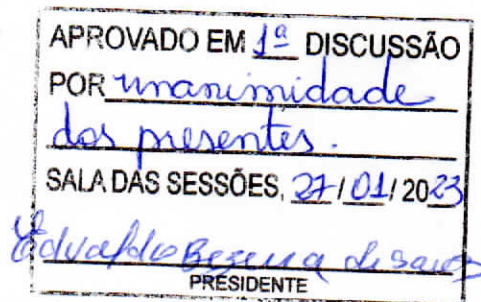 APROVADO EM 1ª DISCUSSÃO
POR unanimidade
dos presentes.
SALA DAS SESSÕES, 27/01/2023
Edvaldo Bezerra de Santos
PRESIDENTE